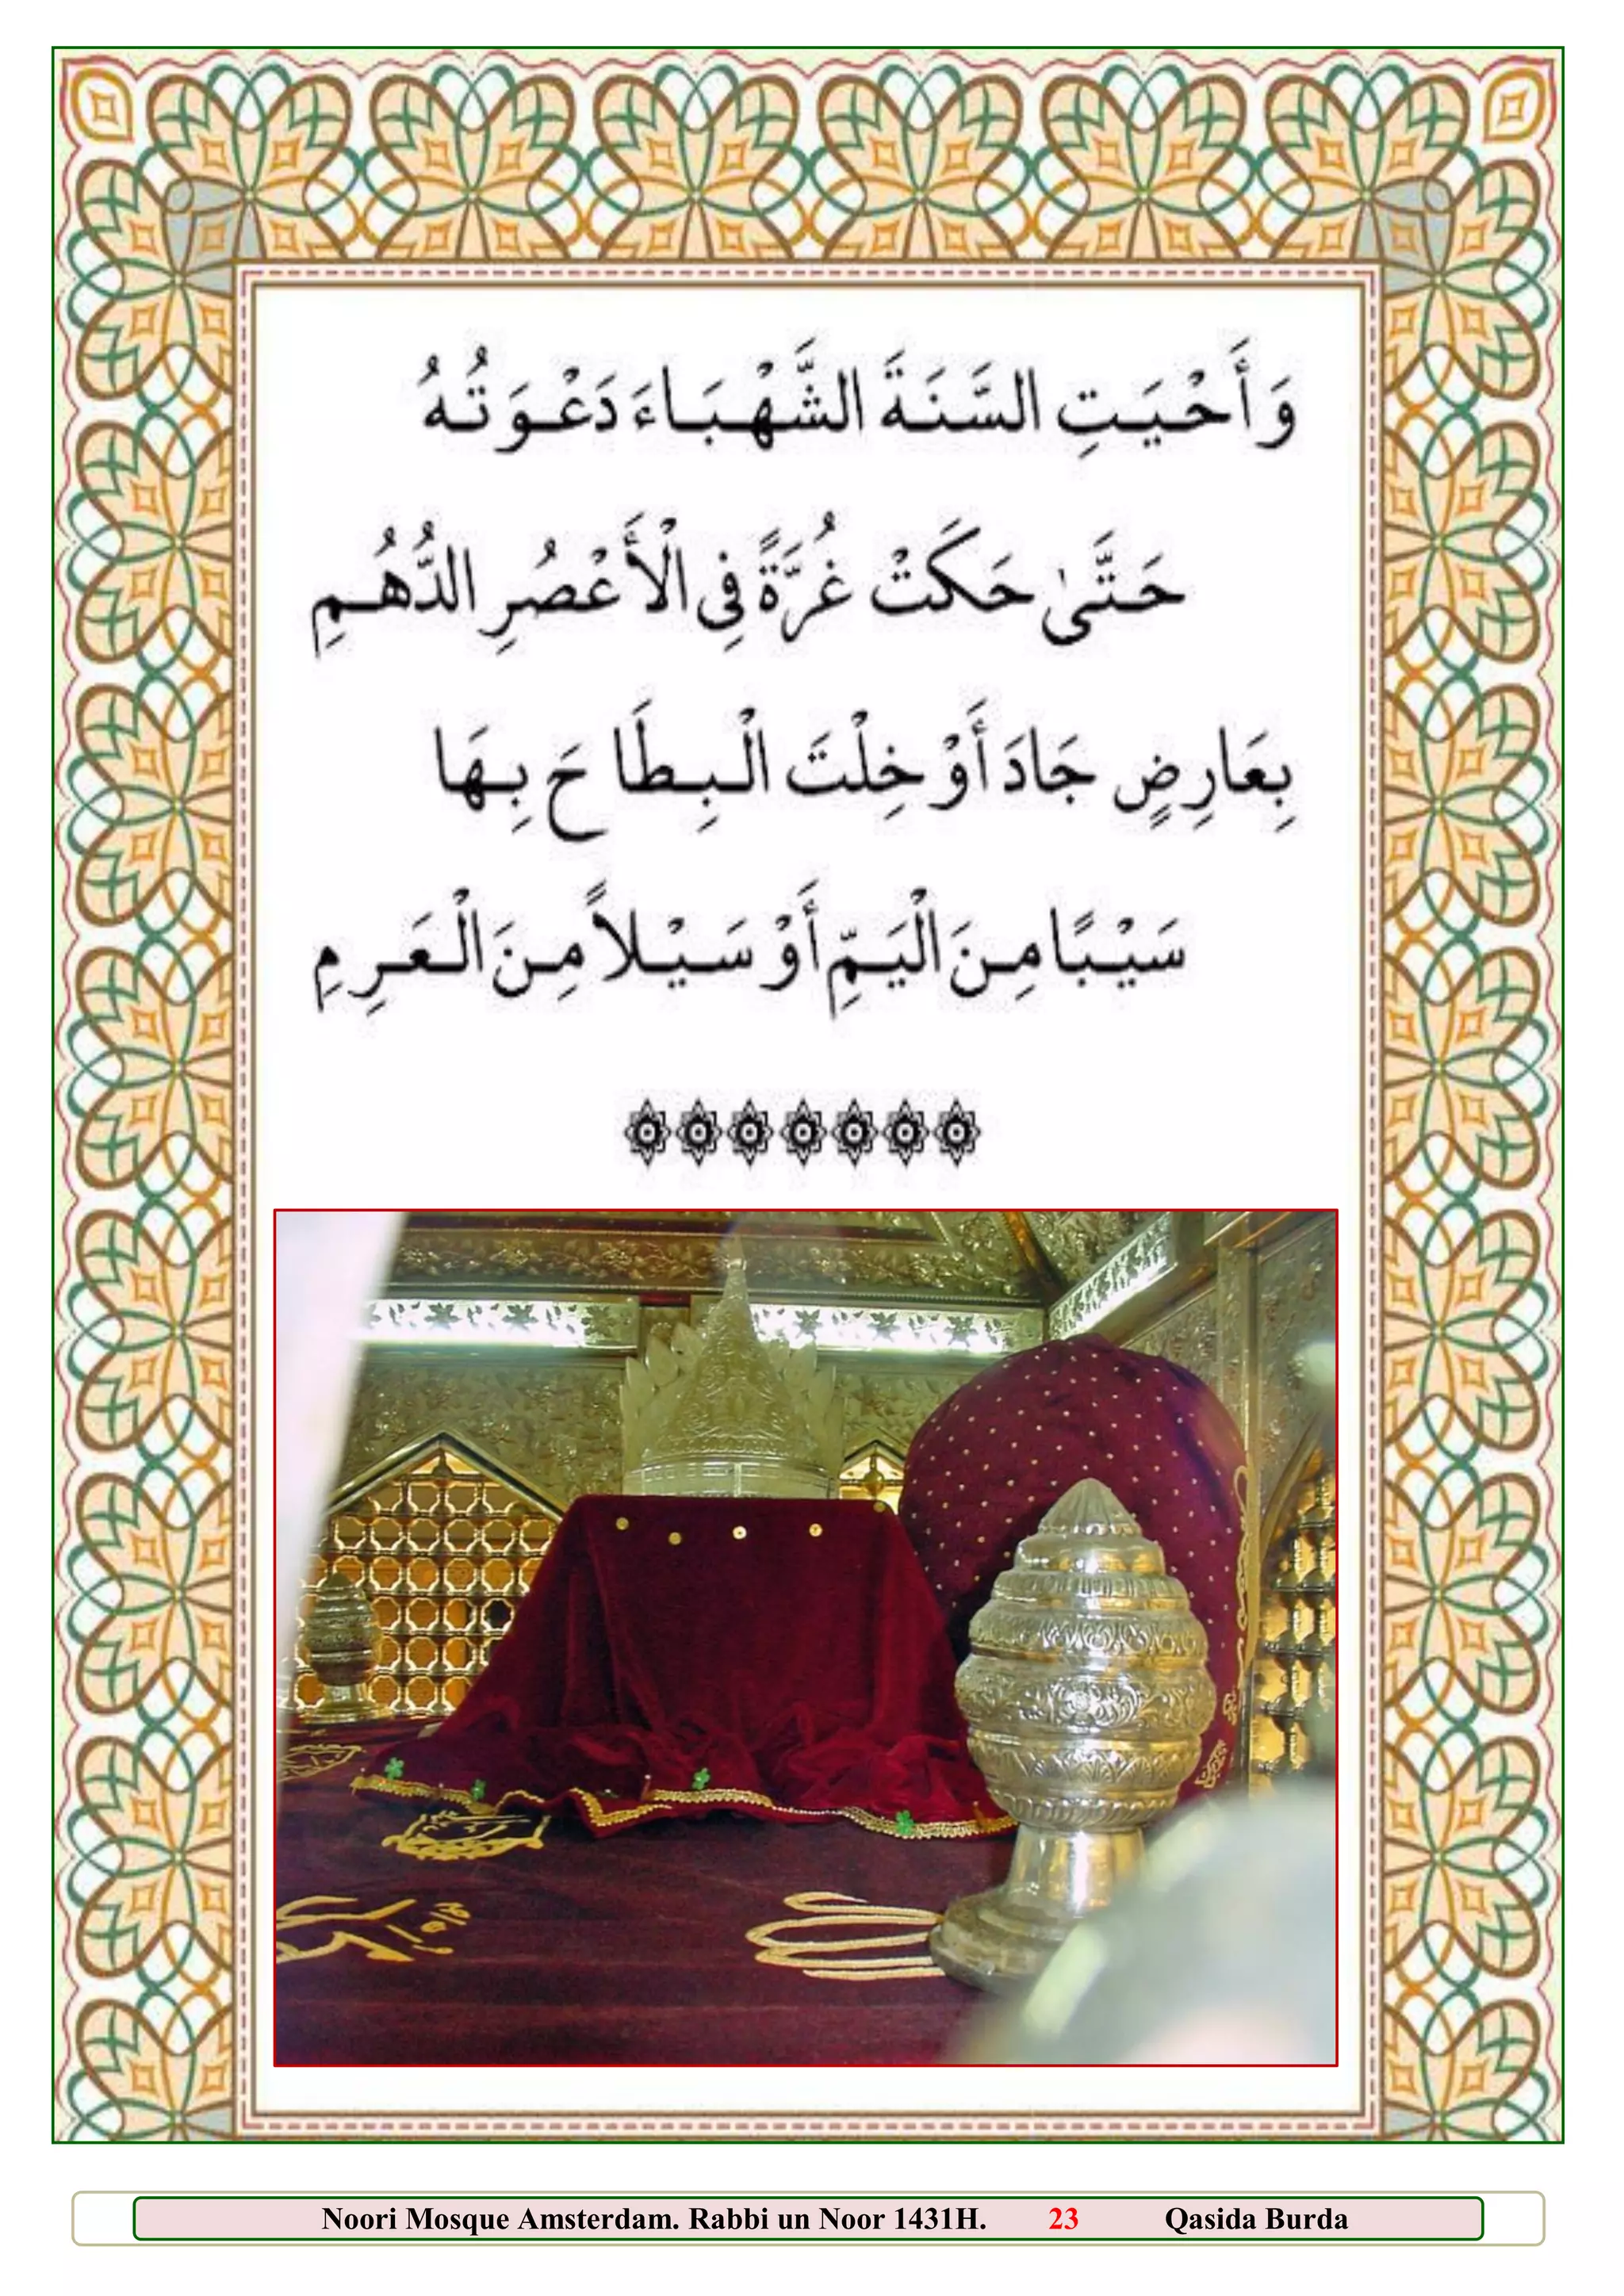 وَأَحْيَتِ السَّنَةَ الشَّهْبَاءَ دَعْوَتُهُ
حَتَّىٰ حَكَتْ غُرَّةً فِى الْأَعْصُرِ الدُّهُمِ
بِعَارِضٍ جَادَ أَوْ خِلْتَ الْبِطَاحَ بِهَا
سَيْبًا مِنَ الْيَمِّ أَوْ سَيْلاً مِنَ الْعَرِمِ
Noori Mosque Amsterdam. Rabbi un Noor 1431H. 23 Qasida Burda